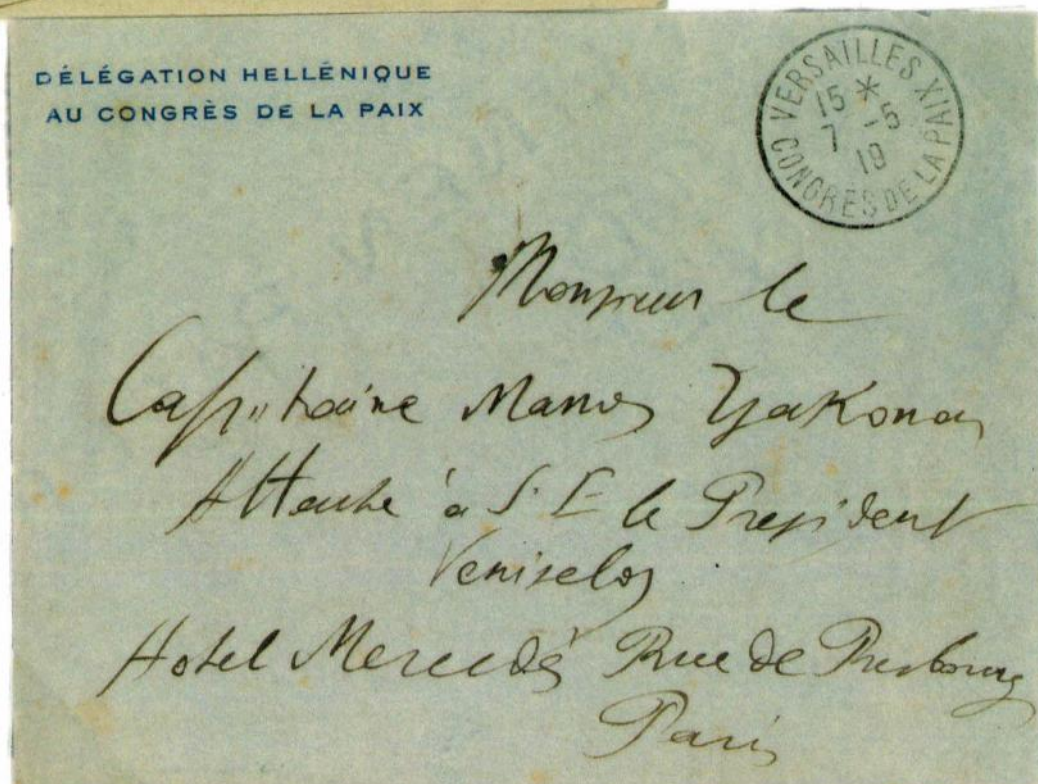 DÉLÉGATION HELLÉNIQUE
AU CONGRÈS DE LA PAIX
VERSAILLES XIX
15 * 7 -5 19
CONGRÈS DE LA PAIX
Monsieur le
Capitaine Manos
Attaché à S. E. le President
Veniselos
Hotel Mercedès Rue de Presbourg
Paris